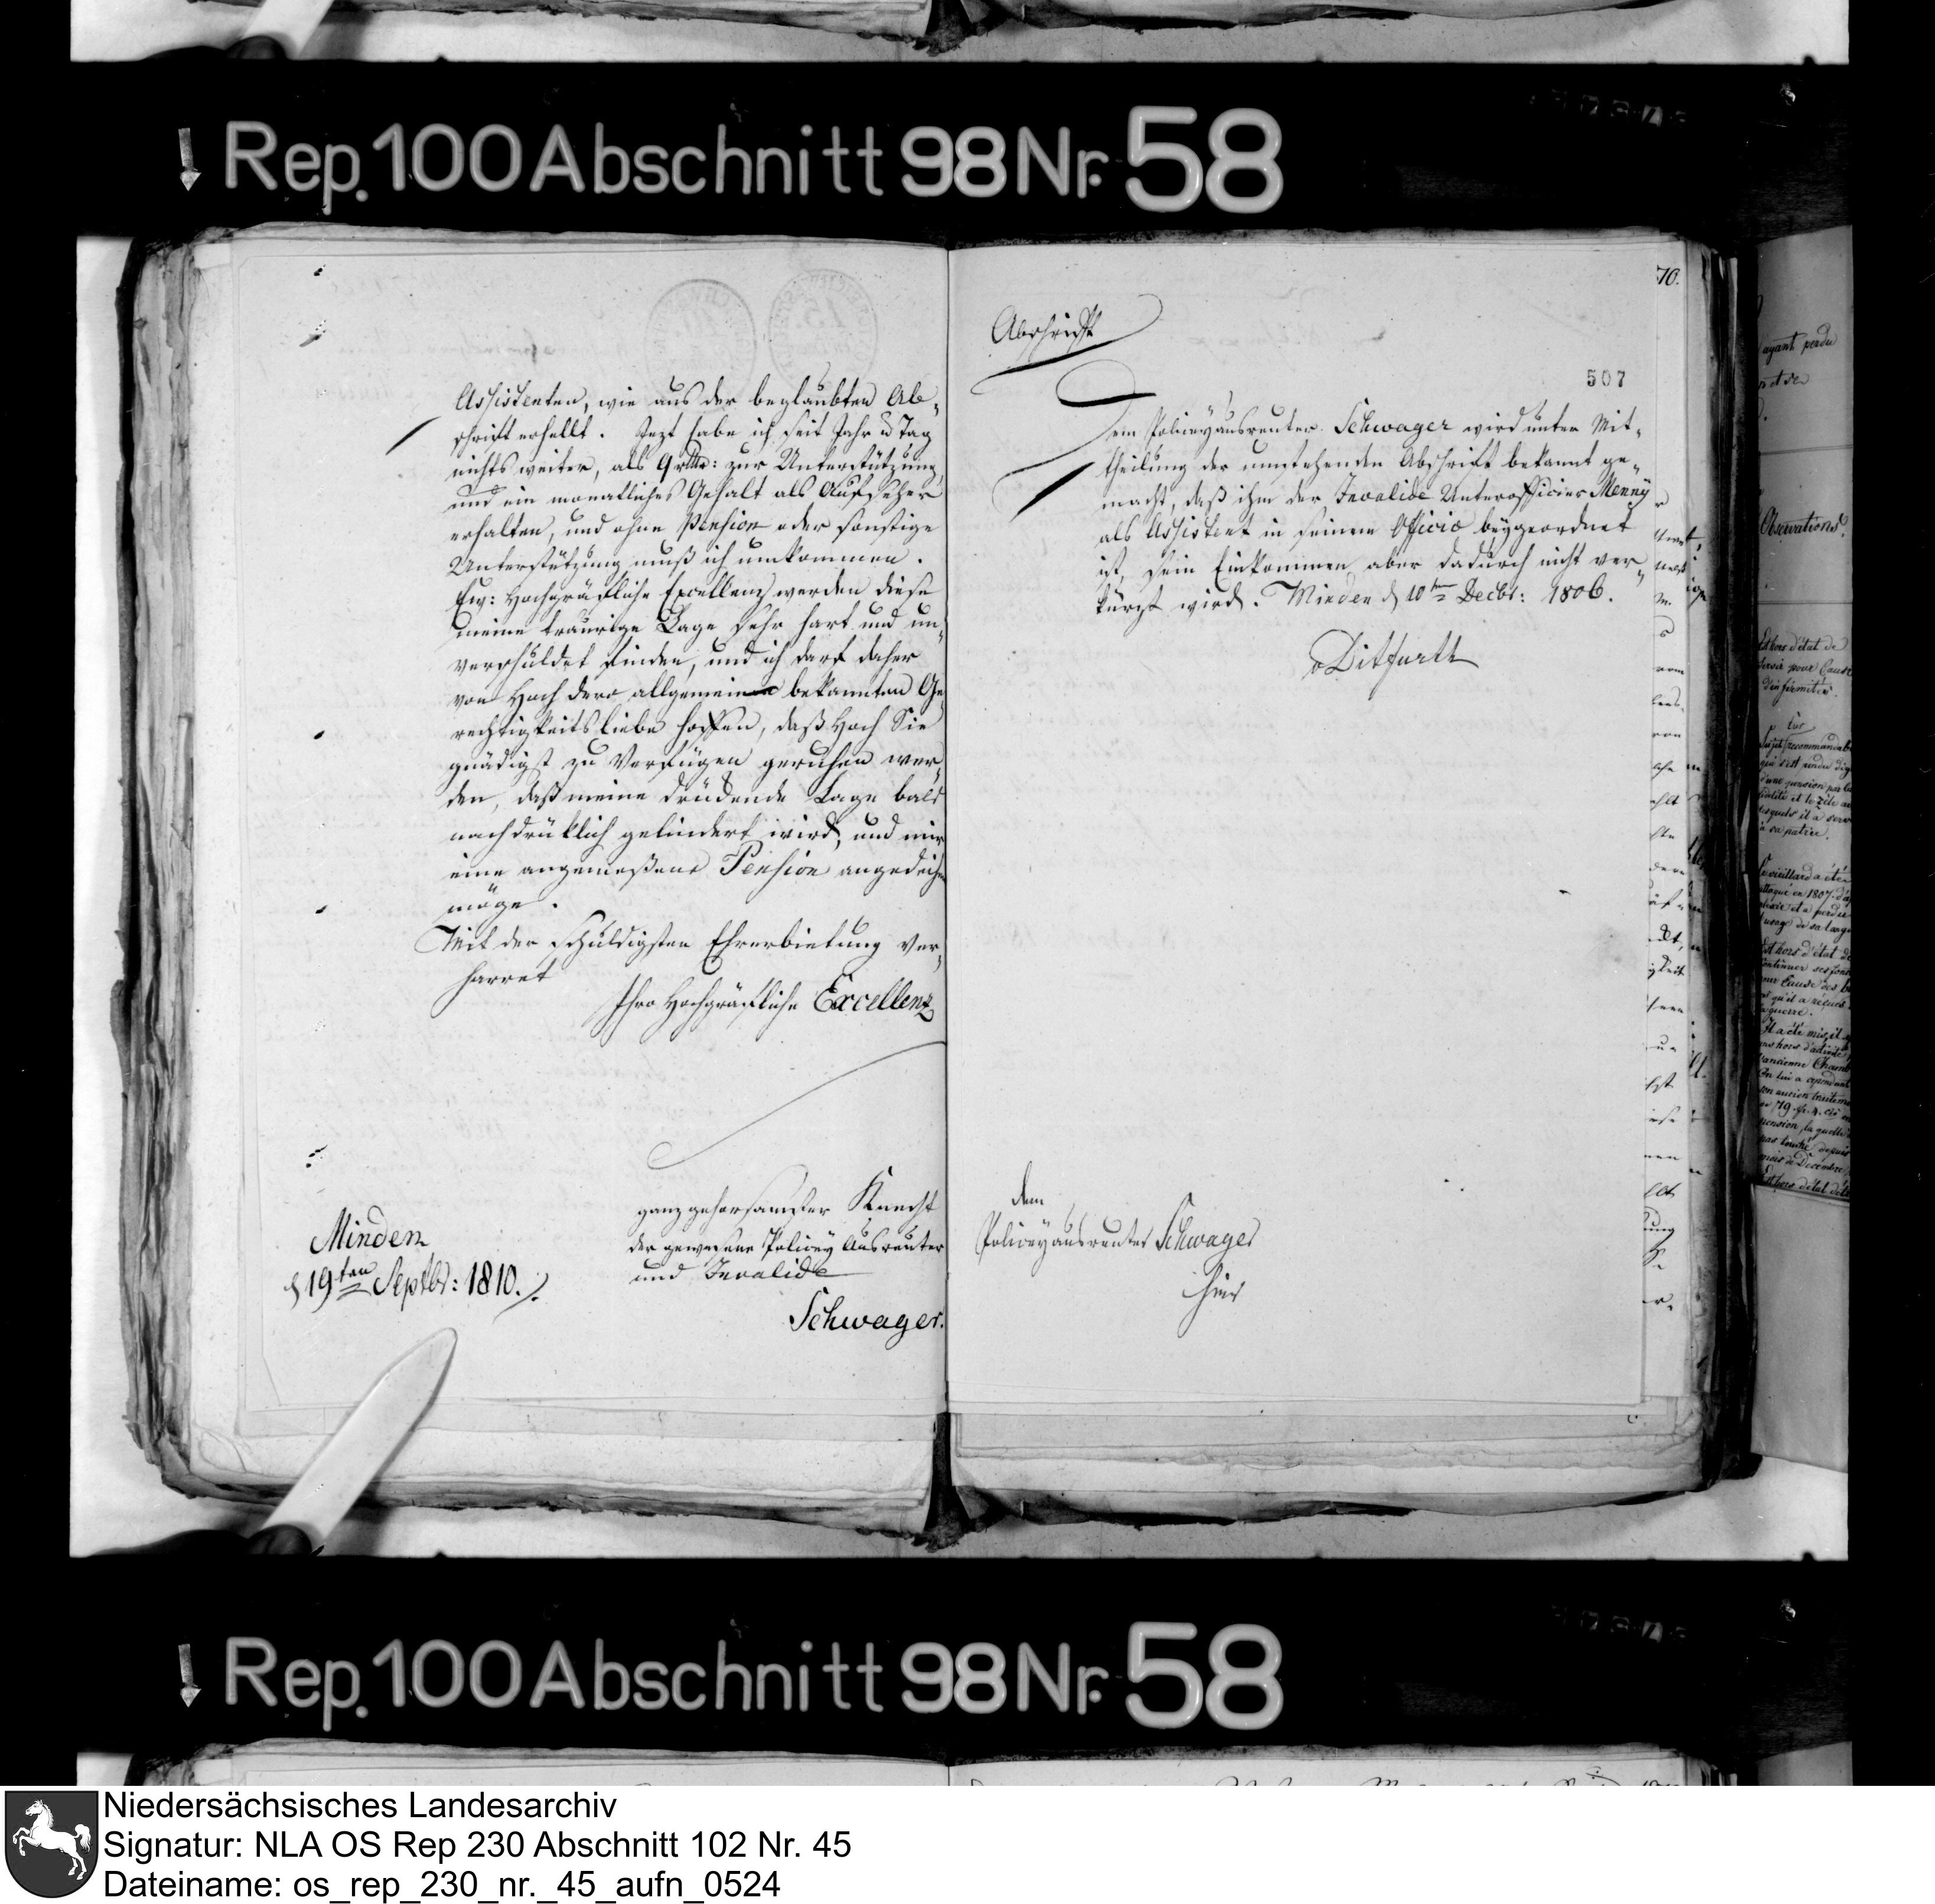 Rep. 100 Abschnitt 98 Nr. 58
Assistenten, wie aus der beglaubten Ab-
schrift erhellt. Jezt habe ich seit Jahr u Tag
nichts weiter, als 9 rthlr: zur Unterstützung,
und ein monatliches Gehalt als Aufseher
erhalten, und ohne Pension oder sonstige
Unterstützung muß ich umkommen.
Ew: Hochgräfliche Excellenz werden diese
meine traurige Lage sehr hart und un-
verschuldet finden, und ich darf daher
von Hoch dero allgemein bekannten Ge-
rechtigkeitsliebe hoffen, daß Hoch Sie
gnädigst zu verfügen geruhen wer-
den, daß meine drückende Lage bald
nachdrüklich gelindert wird, und mir
eine angemeßene Pension angedeihen
möge.
Mit der schuldigsten Ehrerbietung ver-
harret
Ihro Hochgräfliche Excellenz
ganz gehorsamster Knecht
der gewesene Policey Ausreuter
und Invalide
Schwager.
Minden
d 19ten Septbr: 1810.
70.
Abschrift
507
Dem Policeyausreuter Schwager wird unter Mit-
theilung der umstehenden Abschrift bekannt ge-
macht, daß ihm der Invalide Unterofficier Menny
als Assistent in seinem Officio beygeordnet
ist, sein Einkommen aber dadurch nicht ver-
kürzt wird. Minden d 10ten Decbr: 1806.
v Ditfurth
dem
Policeyausreuter Schwager
hier
ayant perdu
Observations.
Est hors d'état de
servir pour cause
d'infirmités.
Rep. 100 Abschnitt 98 Nr. 58
Niedersächsisches Landesarchiv
Signatur: NLA OS Rep 230 Abschnitt 102 Nr. 45
Dateiname: os_rep_230_nr._45_aufn_0524